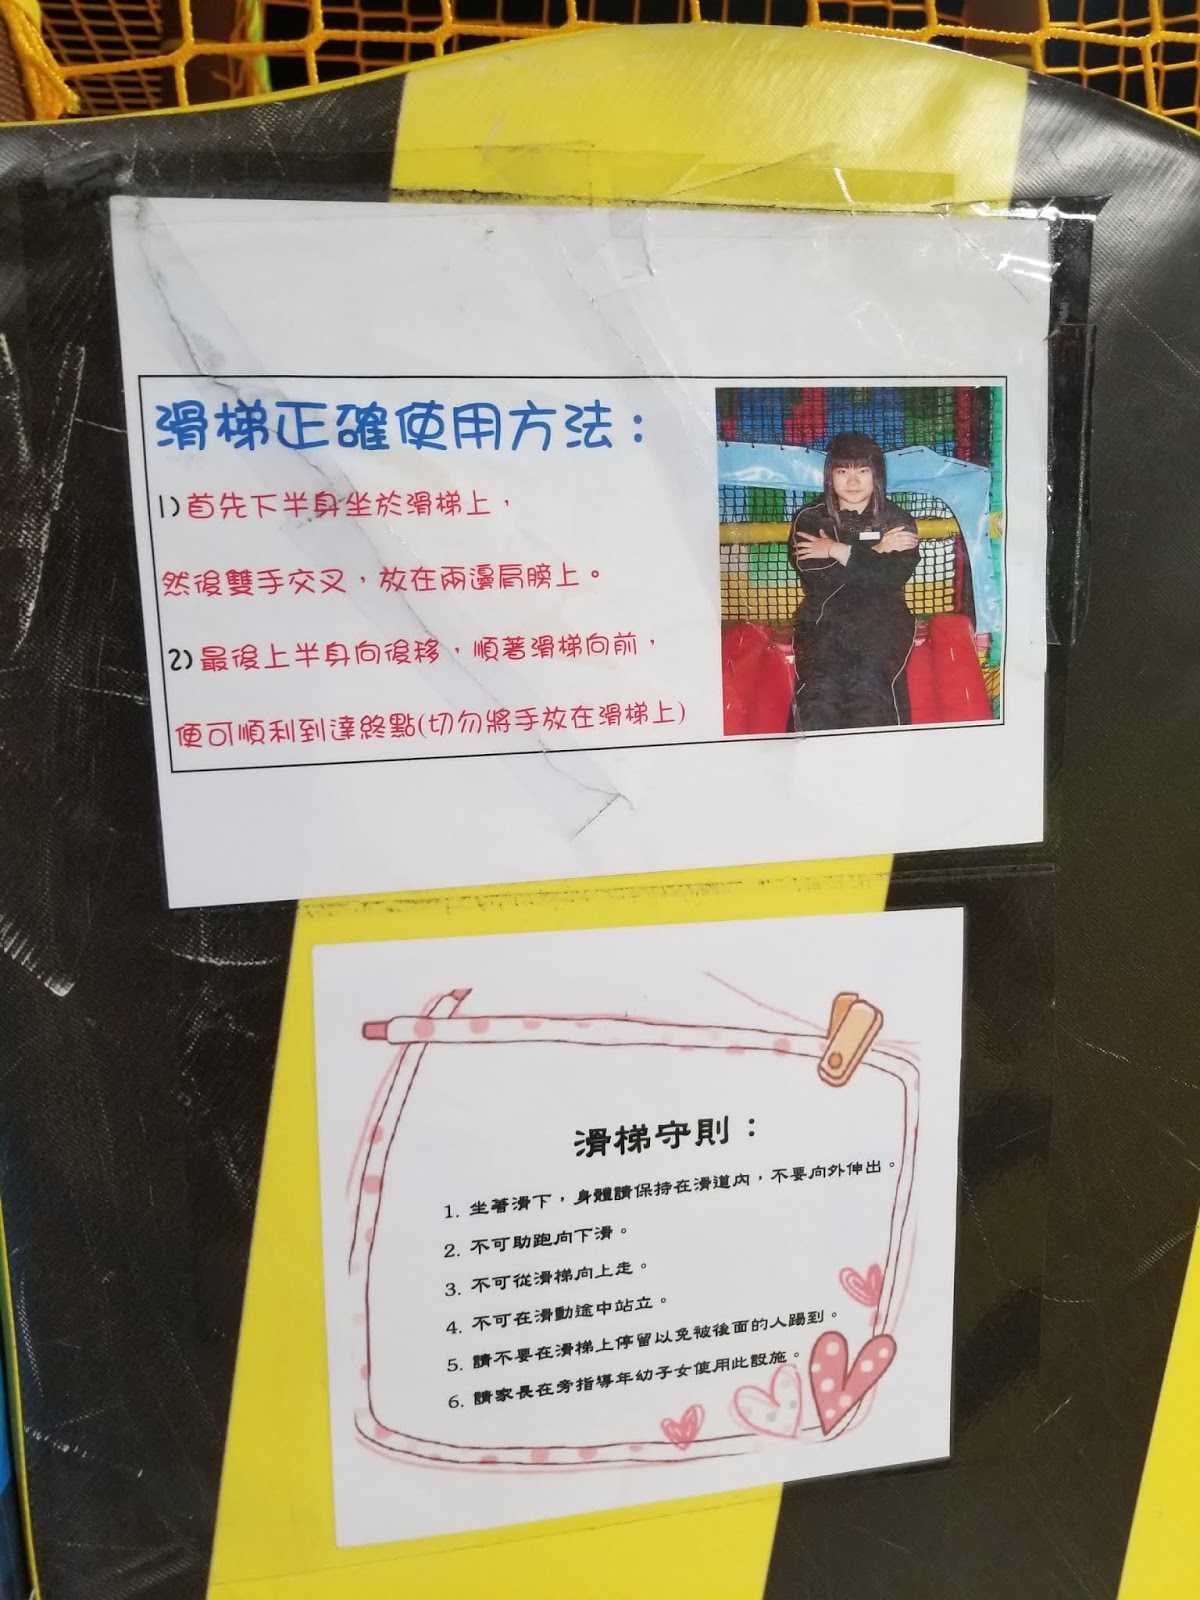 滑梯正確使用方法：
1)首先下半身坐於滑梯上，
然後雙手交叉，放在兩邊肩膀上。
2)最後上半身向後移，順著滑梯向前，
便可順利到達終點(切勿將手放在滑梯上)
滑梯守則：
1. 坐著滑下，身體請保持在滑道內，不要向外伸出。
2. 不可助跑向下滑。
3. 不可從滑梯向上走。
4. 不可在滑動途中站立。
5. 請不要在滑梯上停留以免被後面的人踢到。
6. 請家長在旁指導年幼子女使用此設施。